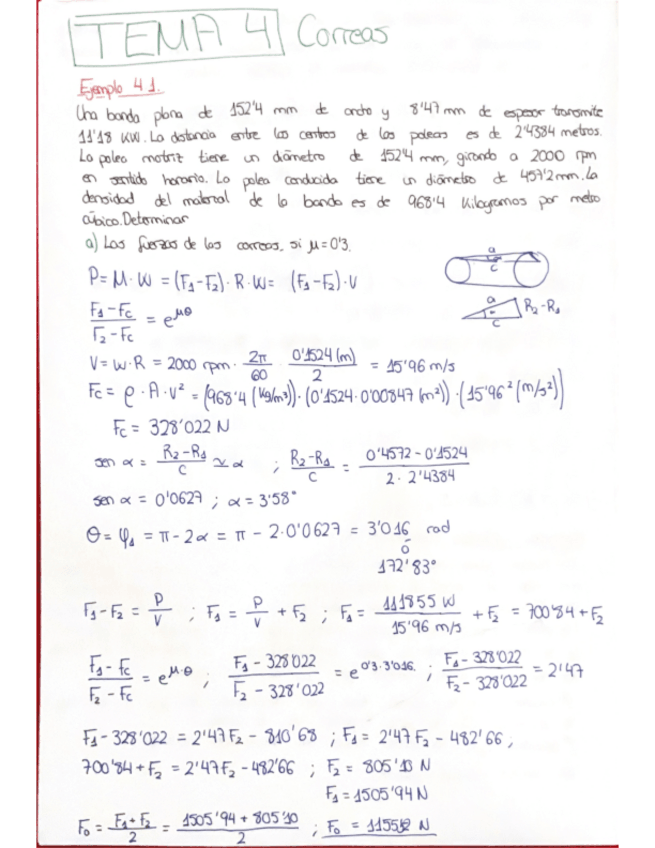 TEMA 4 Correas
Ejemplo 4.1.
Una banda plana de 152'4 mm de ancho y 8'47 mm de espesor transmite
11'18 KW. La distancia entre los centros de las poleas es de 2'4384 metros.
La polea motriz tiene un diámetro de 152'4 mm, girando a 2000 rpm
en sentido horario. La polea conducida tiene un diámetro de 457'2 mm. La
densidad del material de la banda es de 968'4 Kilogramos por metro
cúbico. Determinar
a) Las fuerzas de las correas, si μ=0'3.
P = M · W = (F₁-F₂) · R · W = (F₁-F₂) · V
a
c
(F₁-Fc)/(F₂-Fc) = e^μθ
a
R₂-R₁
c
V = W · R = 2000 rpm · 2π/60 · 0'1524 (m)/2 = 15'96 m/s
Fc = ρ · A · v² = (968'4 (kg/m³)) · (0'1524 · 0'00847 (m²)) · (15'96² (m/s²))
Fc = 328'022 N
sen α = (R₂-R₁)/c ≃ α ; (R₂-R₁)/c = (0'4572 - 0'1524)/(2 · 2'4384)
sen α = 0'0627 ; α = 3'58°
θ = φ₁ = π - 2α = π - 2·0'0627 = 3'016 rad
ó
172'83°
F₁-F₂ = P/V ; F₁ = P/V + F₂ ; F₁ = 111855 W / 15'96 m/s + F₂ = 700'84 + F₂
(F₁-Fc)/(F₂-Fc) = e^μ·θ ; (F₁ - 328'022)/(F₂ - 328'022) = e^0'3·3'016. ; (F₁ - 328'022)/(F₂ - 328'022) = 2'47
F₁ - 328'022 = 2'47 F₂ - 810'68 ; F₁ = 2'47 F₂ - 482'66 ;
700'84 + F₂ = 2'47 F₂ - 482'66 ; F₂ = 805'13 N
F₁ = 1505'94 N
F₀ = (F₁+F₂)/2 = (1505'94 + 805'10)/2 ; F₀ = 1155'52 N